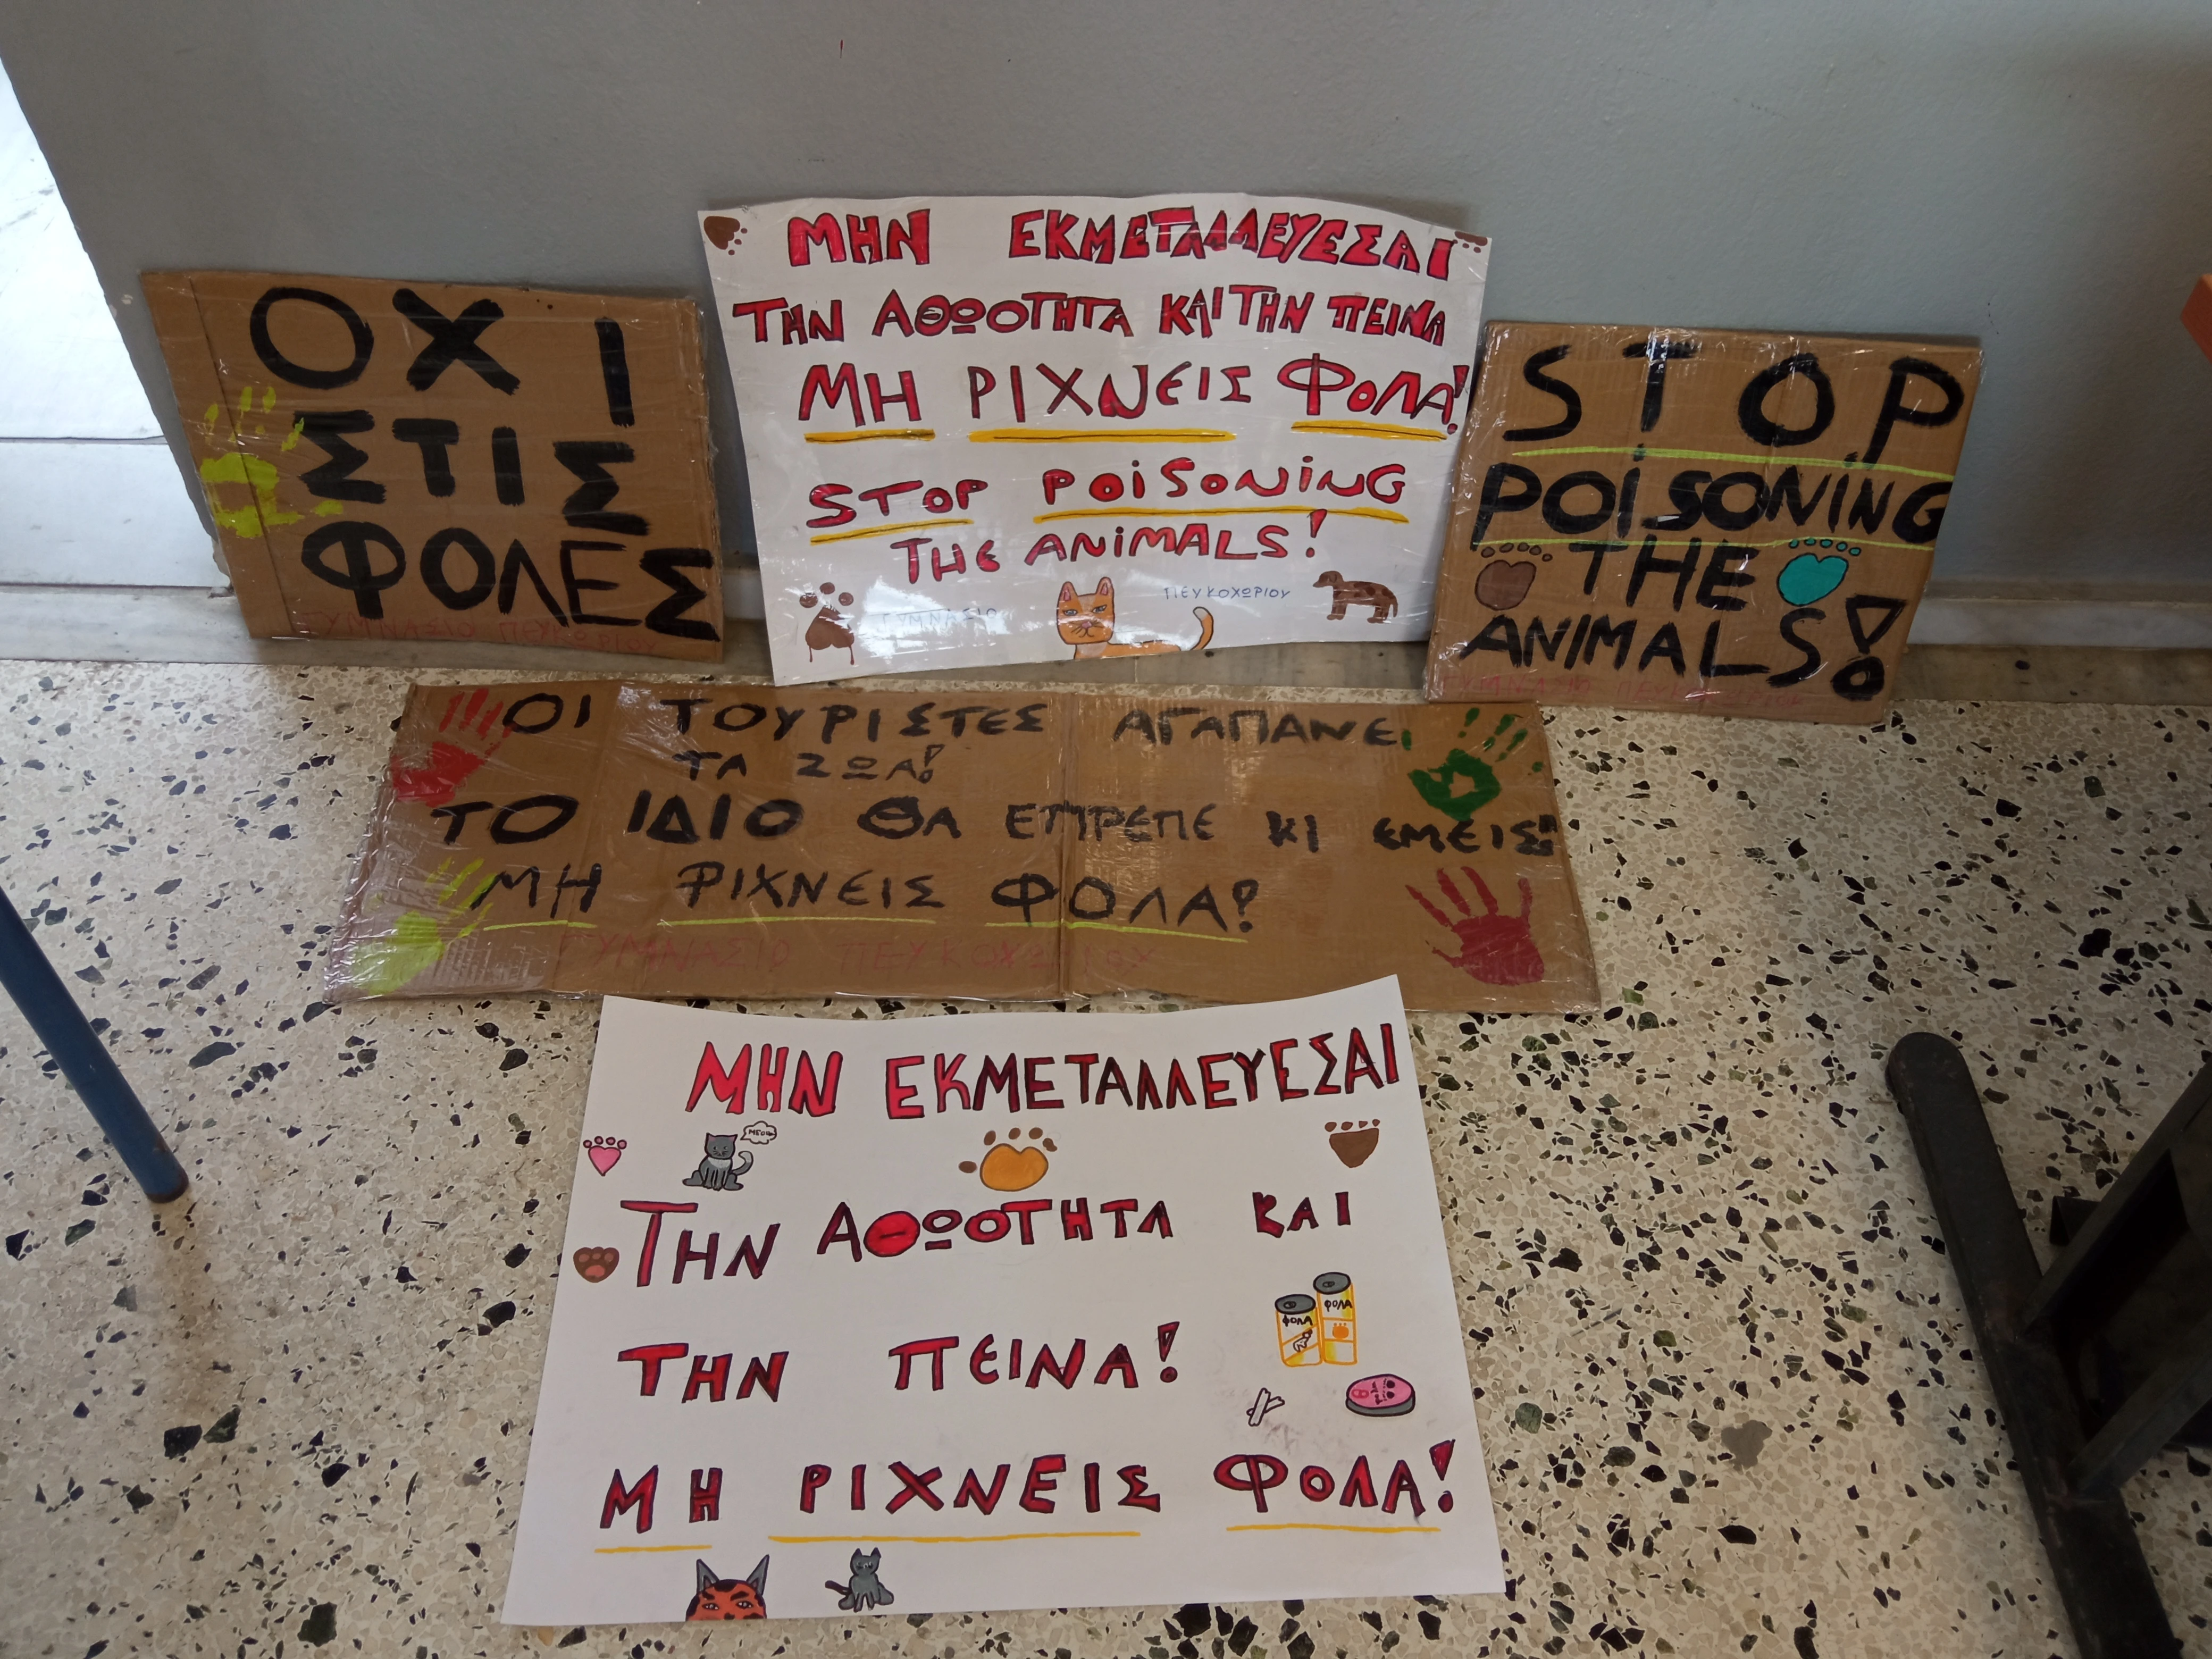 ΟΧΙ
ΣΤΙΣ
ΦΟΛΕΣ
ΓΥΜΝΑΣΙΟ ΠΕΥΚΟΧΩΡΙΟΥ
ΜΗΝ ΕΚΜΕΤΑΛΛΕΥΕΣΑΙ
ΤΗΝ ΑΘΩΟΤΗΤΑ ΚΑΙ ΤΗΝ ΠΕΙΝΑ
ΜΗ ΡΙΧΝΕΙΣ ΦΟΛΑ!
STOP POiSONiNG
THE ANiMALS!
ΓΥΜΝΑΣΙΟ ΠΕΥΚΟΧΩΡΙΟΥ
STOP
POiSONiNG
THE
ANIMALS!
ΓΥΜΝΑΣΙΟ ΠΕΥΚΟΧΩΡΙΟΥ
ΟΙ ΤΟΥΡΙΣΤΕΣ ΑΓΑΠΑΝΕ
ΤΑ ΖΩΑ!
ΤΟ ΙΔΙΟ ΘΑ ΕΠΡΕΠΕ ΚΙ ΕΜΕΙΣ!
ΜΗ ΡΙΧΝΕΙΣ ΦΟΛΑ!
ΓΥΜΝΑΣΙΟ ΠΕΥΚΟΧΩΡΙΟΥ
ΜΗΝ ΕΚΜΕΤΑΛΛΕΥΕΣΑΙ
ΜΕΟW
ΤΗΝ ΑΘΩΟΤΗΤΑ ΚΑΙ
ΦΟΛΑ
ΦΟΛΑ
ΤΗΝ ΠΕΙΝΑ!
ΜΗ ΡΙΧΝΕΙΣ ΦΟΛΑ!